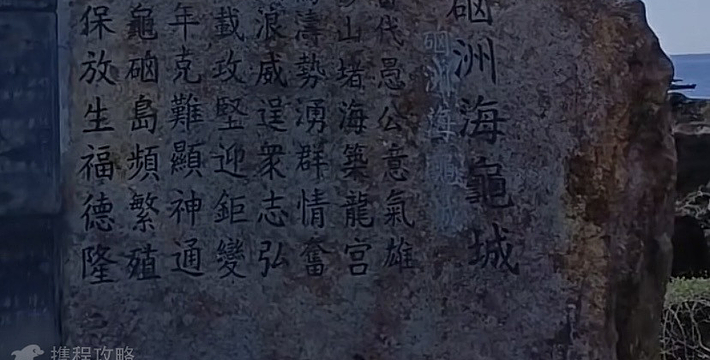 硇洲海龜城
代愚公意氣雄
山堵海築龍宮
濤勢湧群情奮
浪威逞衆志弘
載攻堅迎鉅變
年克難顯神通
龜硇島頻繁殖
保放生福德隆
携程攻略